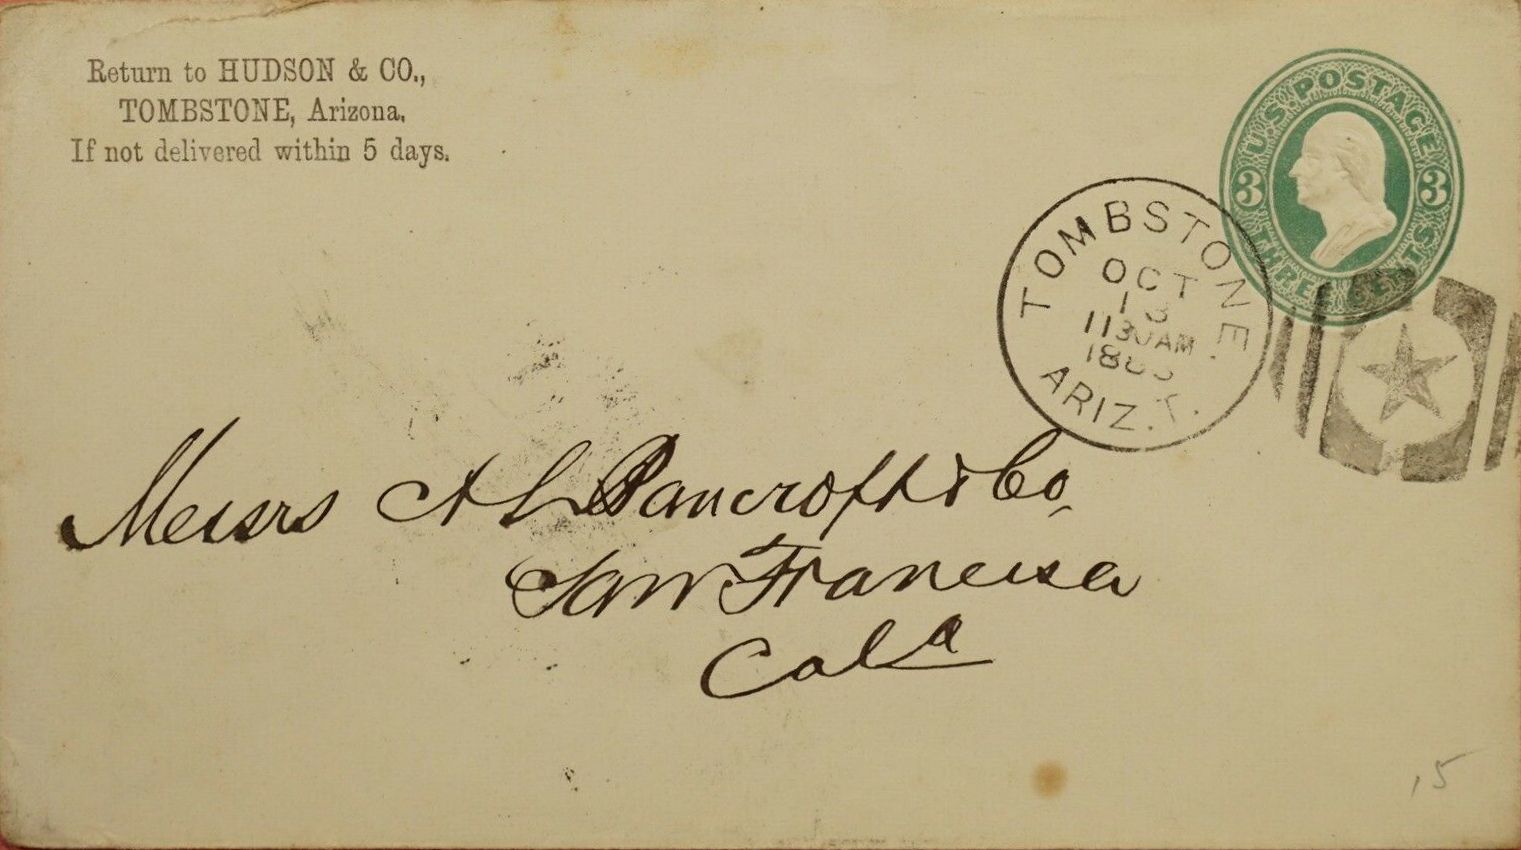 Return to HUDSON & CO.,
TOMBSTONE, Arizona,
If not delivered within 5 days.
U.S. POSTAGE
3 3
THREE CENTS
TOMBSTONE.
OCT
13
1130AM
ARIZ. T.
Messrs A L Bancroft & Co,
San Francisco
Cala
15